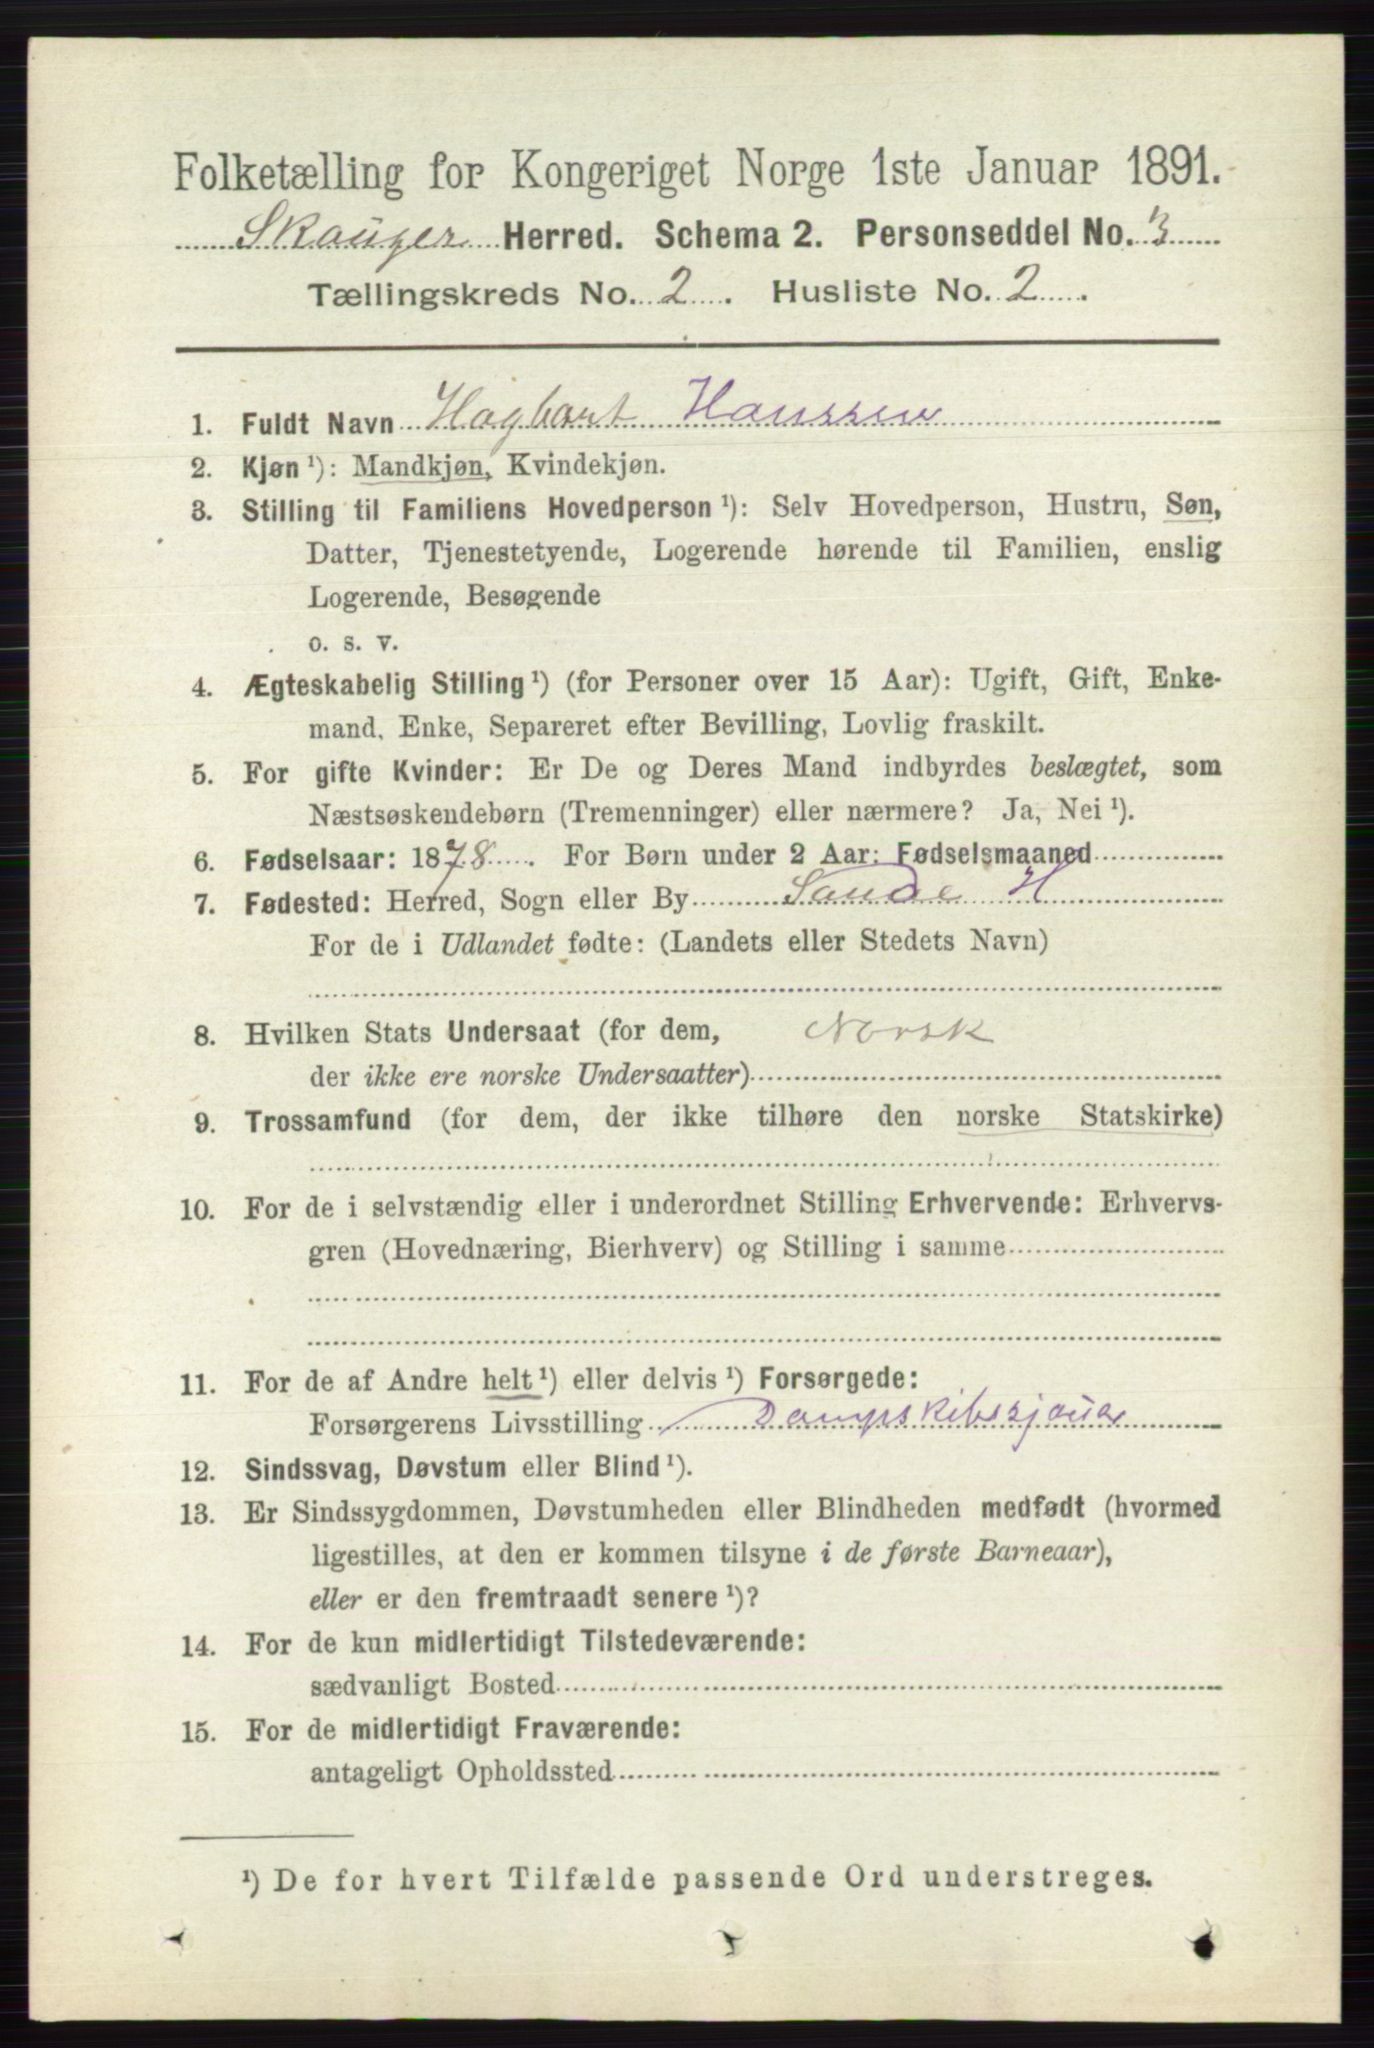 Folketælling for Kongeriget Norge 1ste Januar 1891.
Skouger Herred. Schema 2. Personseddel No. 3
Tællingskreds No. 2. Husliste No. 2.
1. Fuldt Navn Hagbart Hanssen
2. Kjøn ¹): Mandkjøn, Kvindekjøn.
3. Stilling til Familiens Hovedperson ¹): Selv Hovedperson, Hustru, Søn,
Datter, Tjenestetyende, Logerende hørende til Familien, enslig
Logerende, Besøgende
o. s. v.
4. Ægteskabelig Stilling ¹) (for Personer over 15 Aar): Ugift, Gift, Enke-
mand, Enke, Separeret efter Bevilling, Lovlig fraskilt.
5. For gifte Kvinder: Er De og Deres Mand indbyrdes beslægtet, som
Næstsøskendebørn (Tremenninger) eller nærmere? Ja, Nei ¹).
6. Fødselsaar: 1878. For Børn under 2 Aar: Fødselsmaaned
7. Fødested: Herred, Sogn eller By Sande H
For de i Udlandet fødte: (Landets eller Stedets Navn)
8. Hvilken Stats Undersaat (for dem, Norsk
der ikke ere norske Undersaatter)
9. Trossamfund (for dem, der ikke tilhøre den norske Statskirke)
10. For de i selvstændig eller i underordnet Stilling Erhvervende: Erhvervs-
gren (Hovednæring, Bierhverv) og Stilling i samme
11. For de af Andre helt ¹) eller delvis ¹) Forsørgede:
Forsørgerens Livsstilling Dampskibssjauer
12. Sindssvag, Døvstum eller Blind ¹).
13. Er Sindssygdommen, Døvstumheden eller Blindheden medfødt (hvormed
ligestilles, at den er kommen tilsyne i de første Barneaar),
eller er den fremtraadt senere ¹)?
14. For de kun midlertidigt Tilstedeværende:
sædvanligt Bosted
15. For de midlertidigt Fraværende:
antageligt Opholdssted
¹) De for hvert Tilfælde passende Ord understreges.